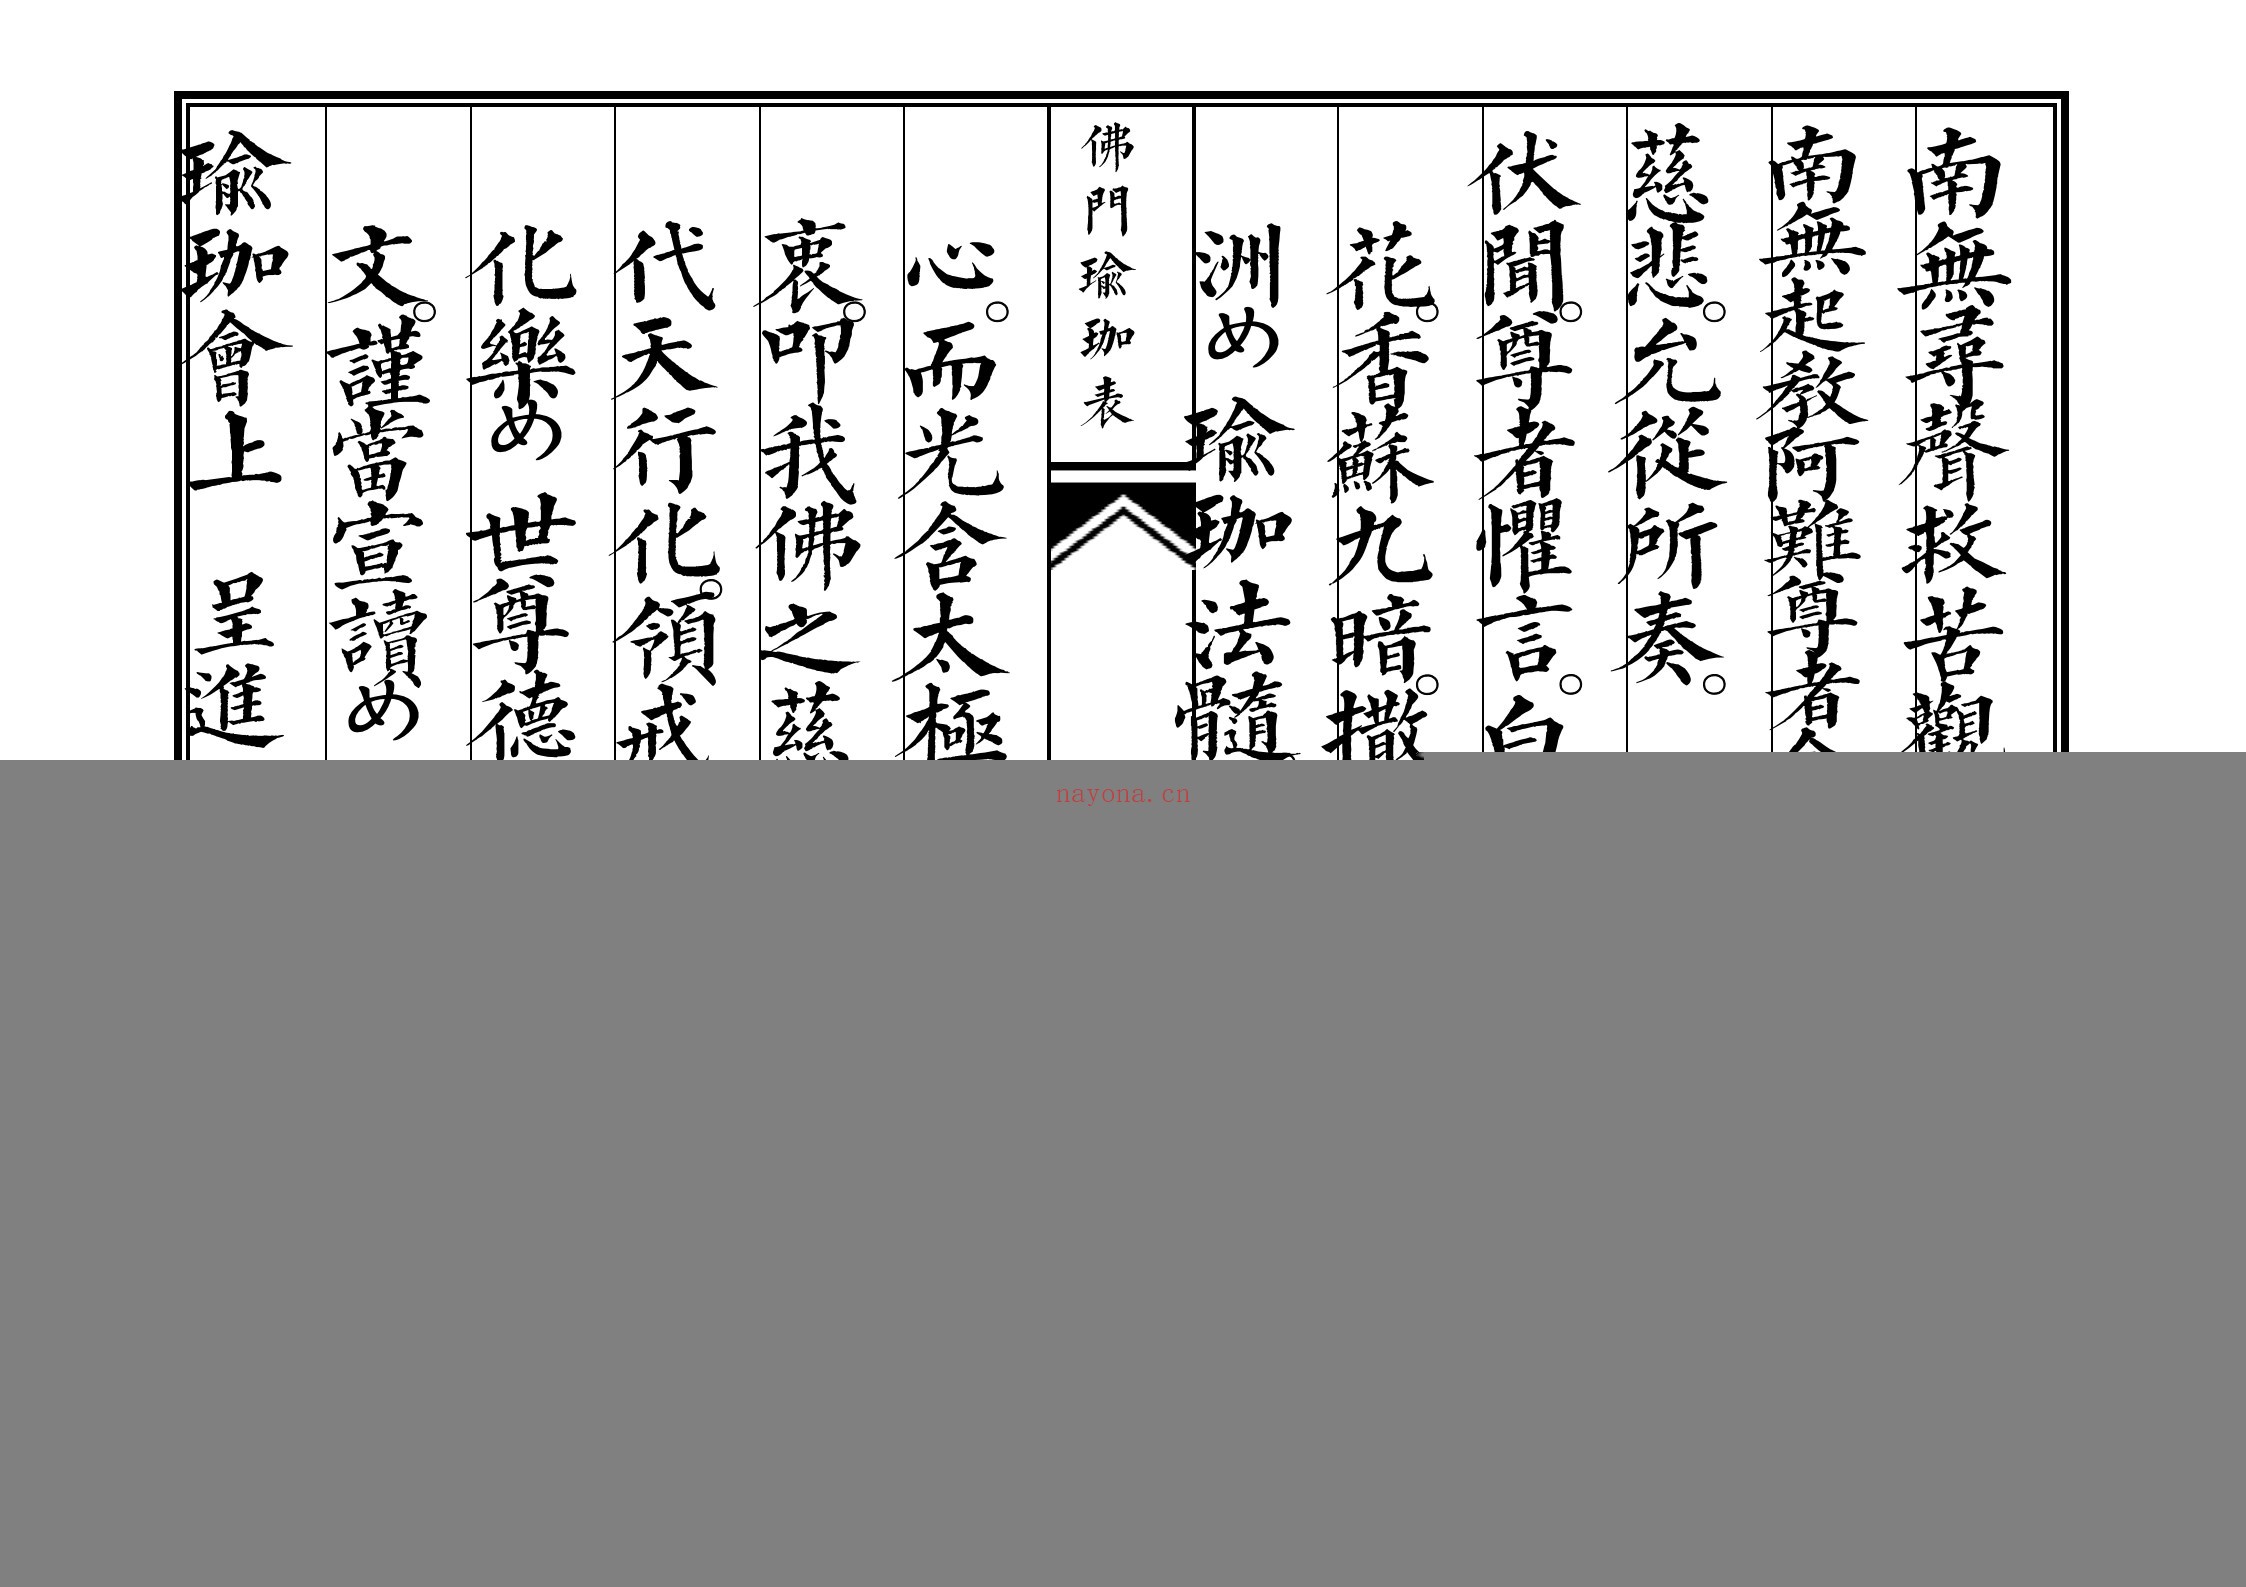 南無尋聲救苦觀
南無起教阿難尊者
慈悲。允從所奏。
伏聞。尊者懼言。白
花。香蘇九暗。撒
洲め 瑜珈法髓
佛門瑜珈表
心。而光含太極
衷。叩我佛之慈
代天行化。領戒
化樂め 世尊德
文。謹當宣讀め
瑜珈會上 呈進
nayona.cn